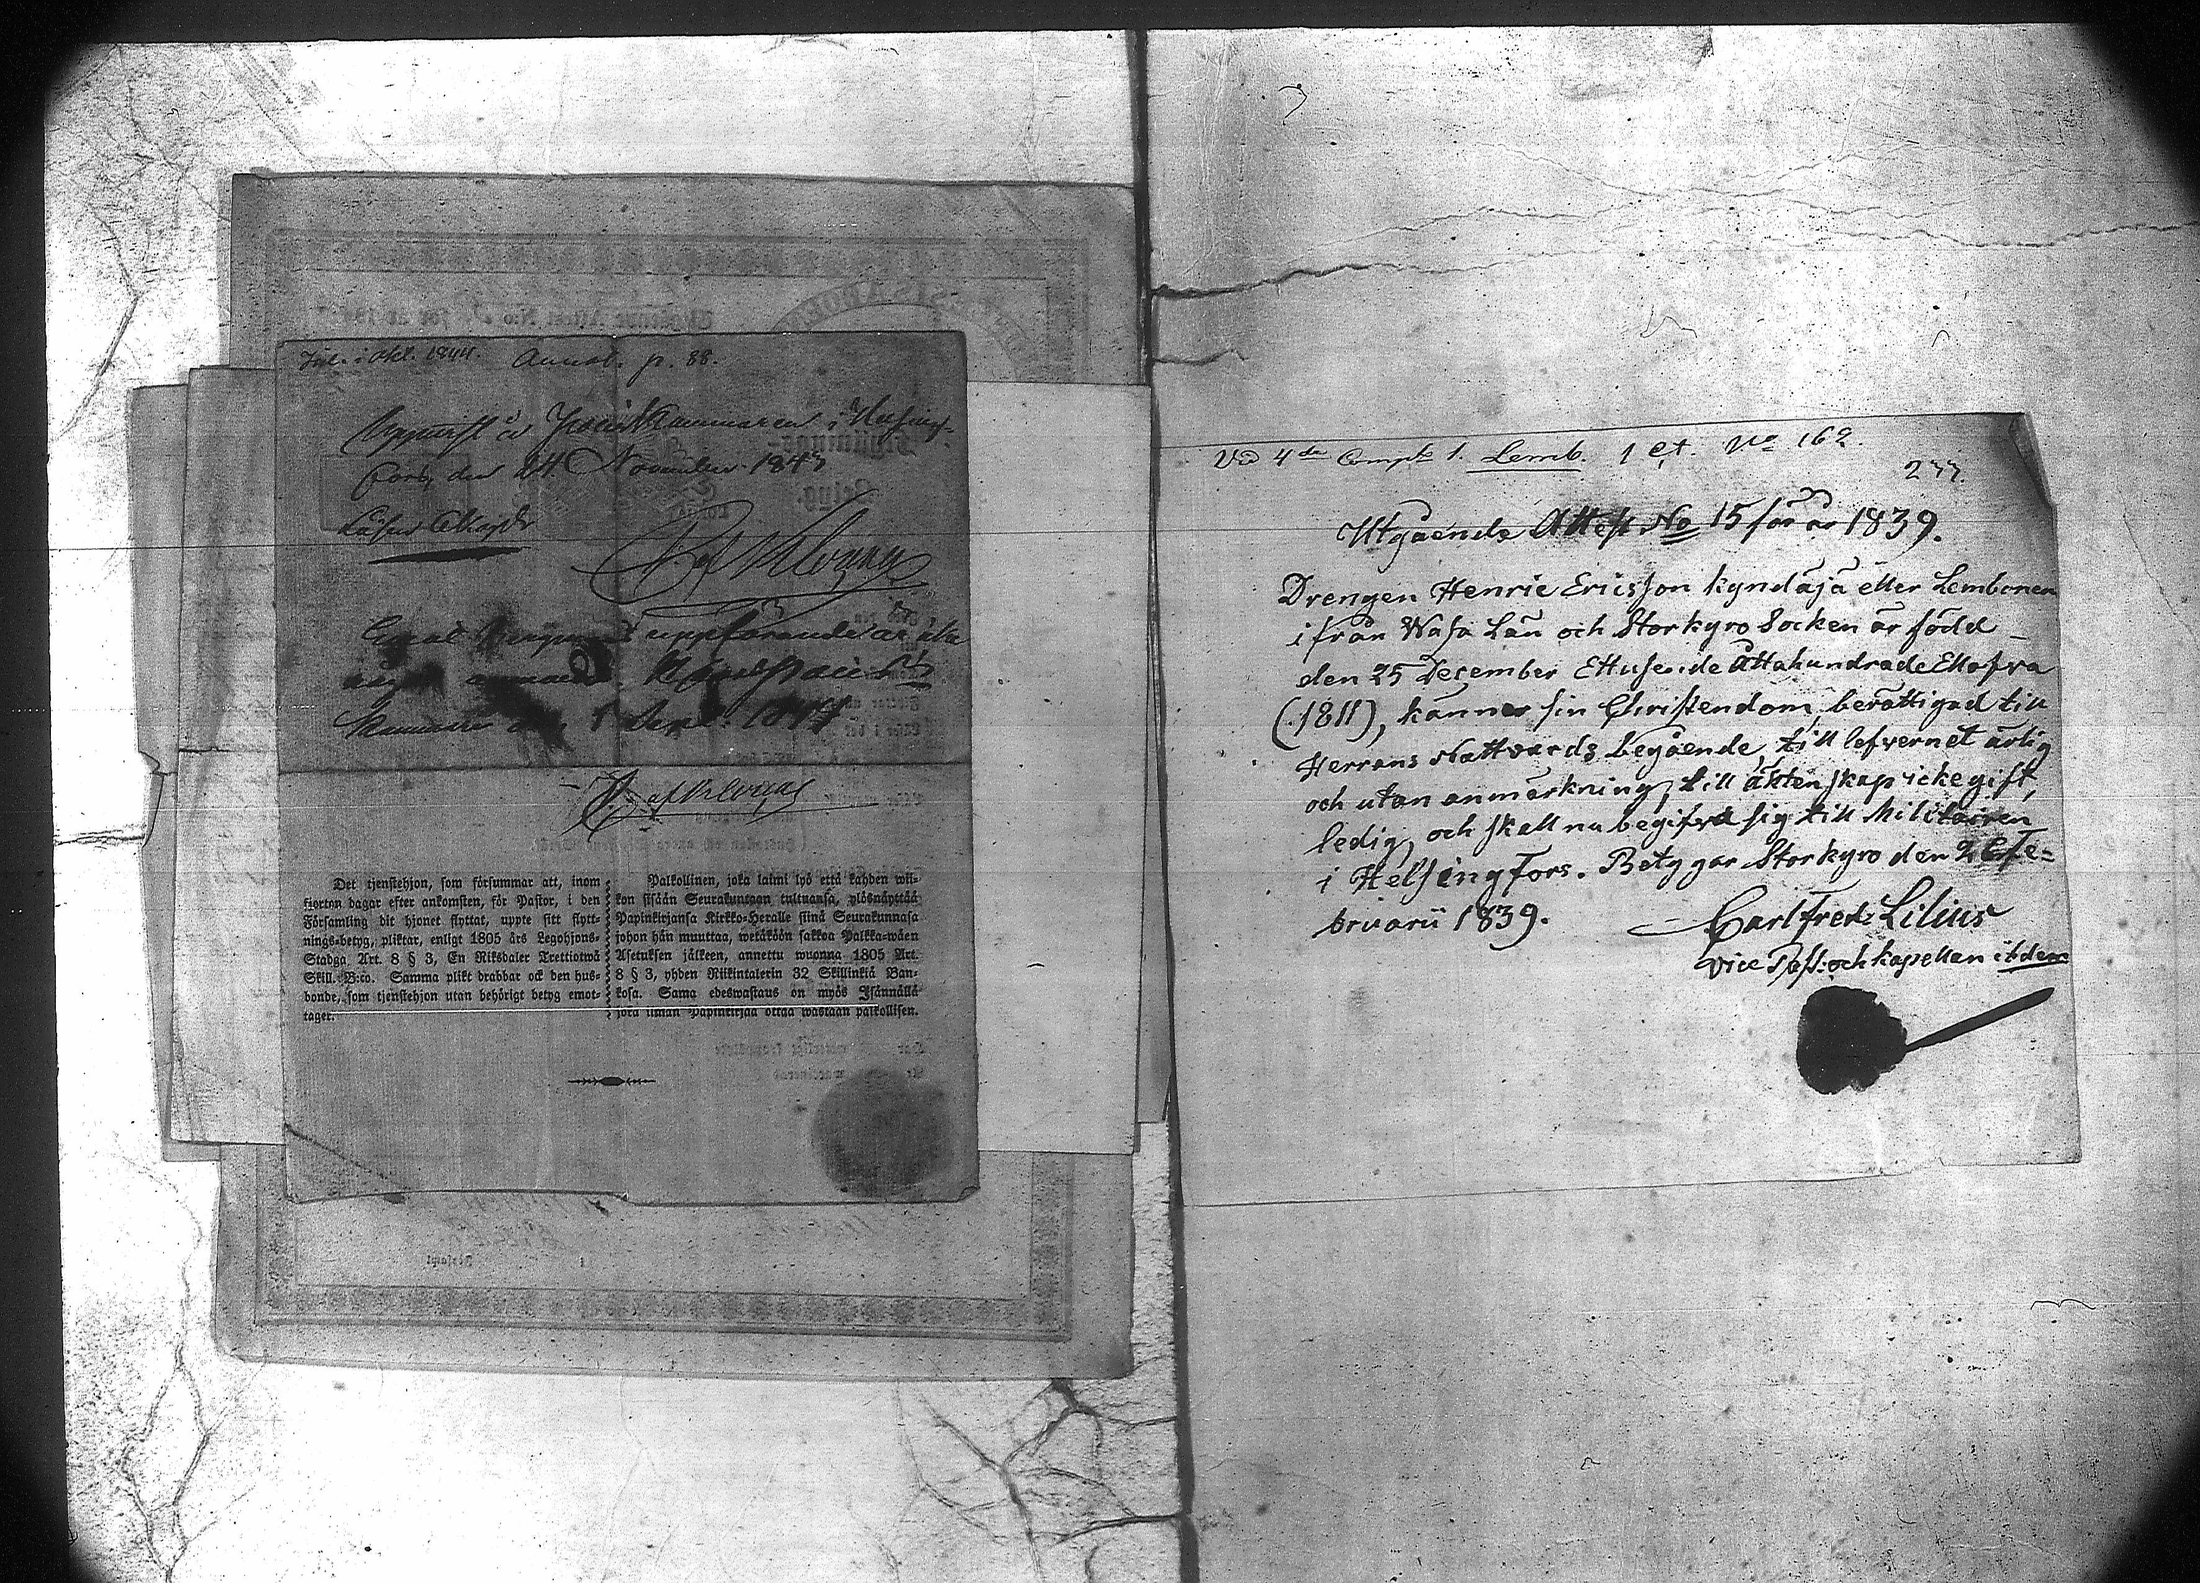 Inl. i Okt. 1844. Annot. p. 88.
Uppvist å Polis Kammaren i Helsing-
fors, den 24 November 1843
af Klercker
uppförande är icke
Kammaren den 5 Sept. 1844
Det tjenstehjon, som försummar att, inom
fjorton dagar efter ankomsten, för Pastor, i den
Församling dit hjonet flyttat, uppte sitt flytt-
nings-betyg, pliktar, enligt 1805 års Legohjons-
Stadga Art. 8 § 3, En Riksdaler Trettiotwå
Skill. B:co. Samma plikt drabbar ock den hus-
bonde, som tjenstehjon utan behörigt betyg emot-
tager.
Palkollinen, joka laimi lyö että kahden wii-
kon sisään Seurakuntaan tultuansa, ylösnäyttää
Papinkirjansa Kirkko-Heralle siinä Seurakunnasa
johon hän muuttaa, wetäköön sakkoa Palkka-wäen
Asetuksen jälkeen, annettu wuonna 1805 Art.
8 § 3, yhden Riikintalerin 32 Skillinkiä Ban-
kosa. Sama edeswastaus on myös Isännällä
joka ilman Papinkirjaa ottaa wastaan palkollisen.
Vid 4de Comp. 1. Lemb. 1 Ct. No 162.
277.
Utgående Attest No 15 för år 1839.
Drengen Henric Ericsson Kyndäjä eller Lembonen
ifrån Wasa Län och Storkyro Socken är född
den 25 December Ettusende Åttahundrade Ellofva
(1811), känner sin Christendom, berättigad till
Herrans Nattvards begående, till lefvernet ärlig
och utan anmärkning, till äktenskap icke gift,
ledig, och skall nu begifva sig till Militairen
i Helsingfors. Betygar Storkyro den 26 Fe=
bruarii 1839. Carl Fredr. Lilius
Vice Past: och kapellan ibidem